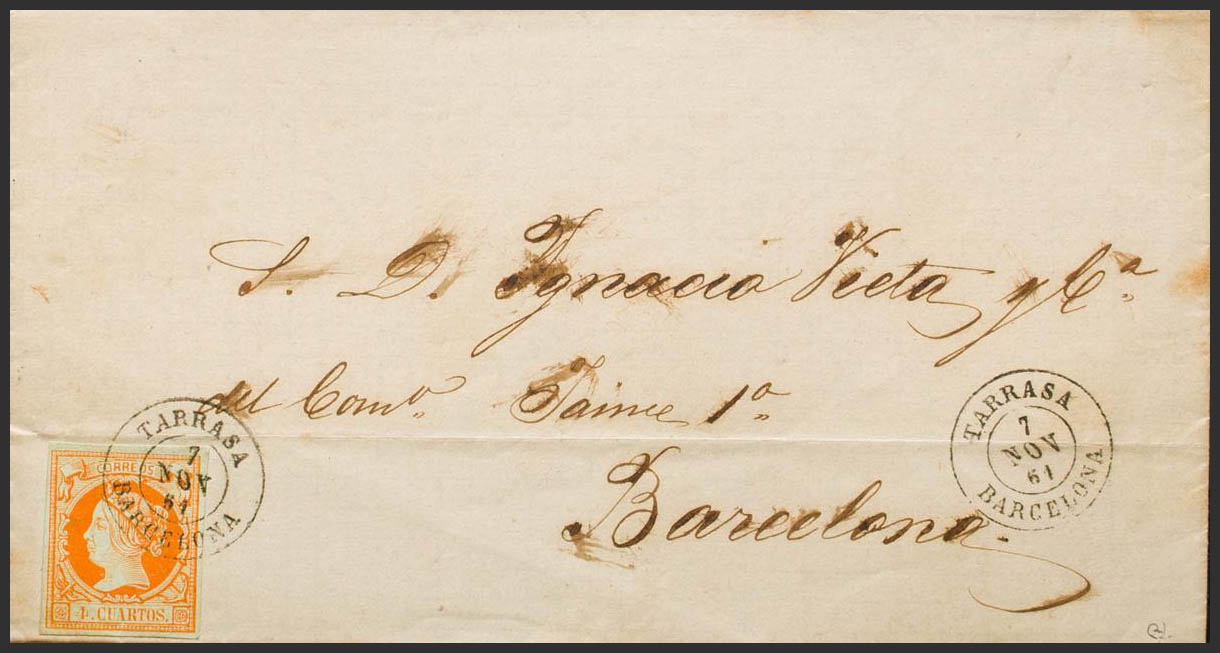 S. D. Ignacio Vieta y Cª
del Comº Jaime 1º
Barcelona
TARRASA
7
NOV
61
BARCELONA
CORREOS
4. CUARTOS.
TARRASA
7
NOV
61
BARCELONA